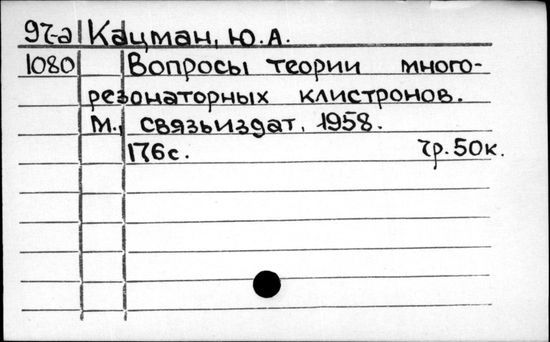 97-а Кацман, Ю.А.
1080 Вопросы теории много-
резонаторных клистронов.
М., связьиздат, 1958.
176с. 7р.50к.